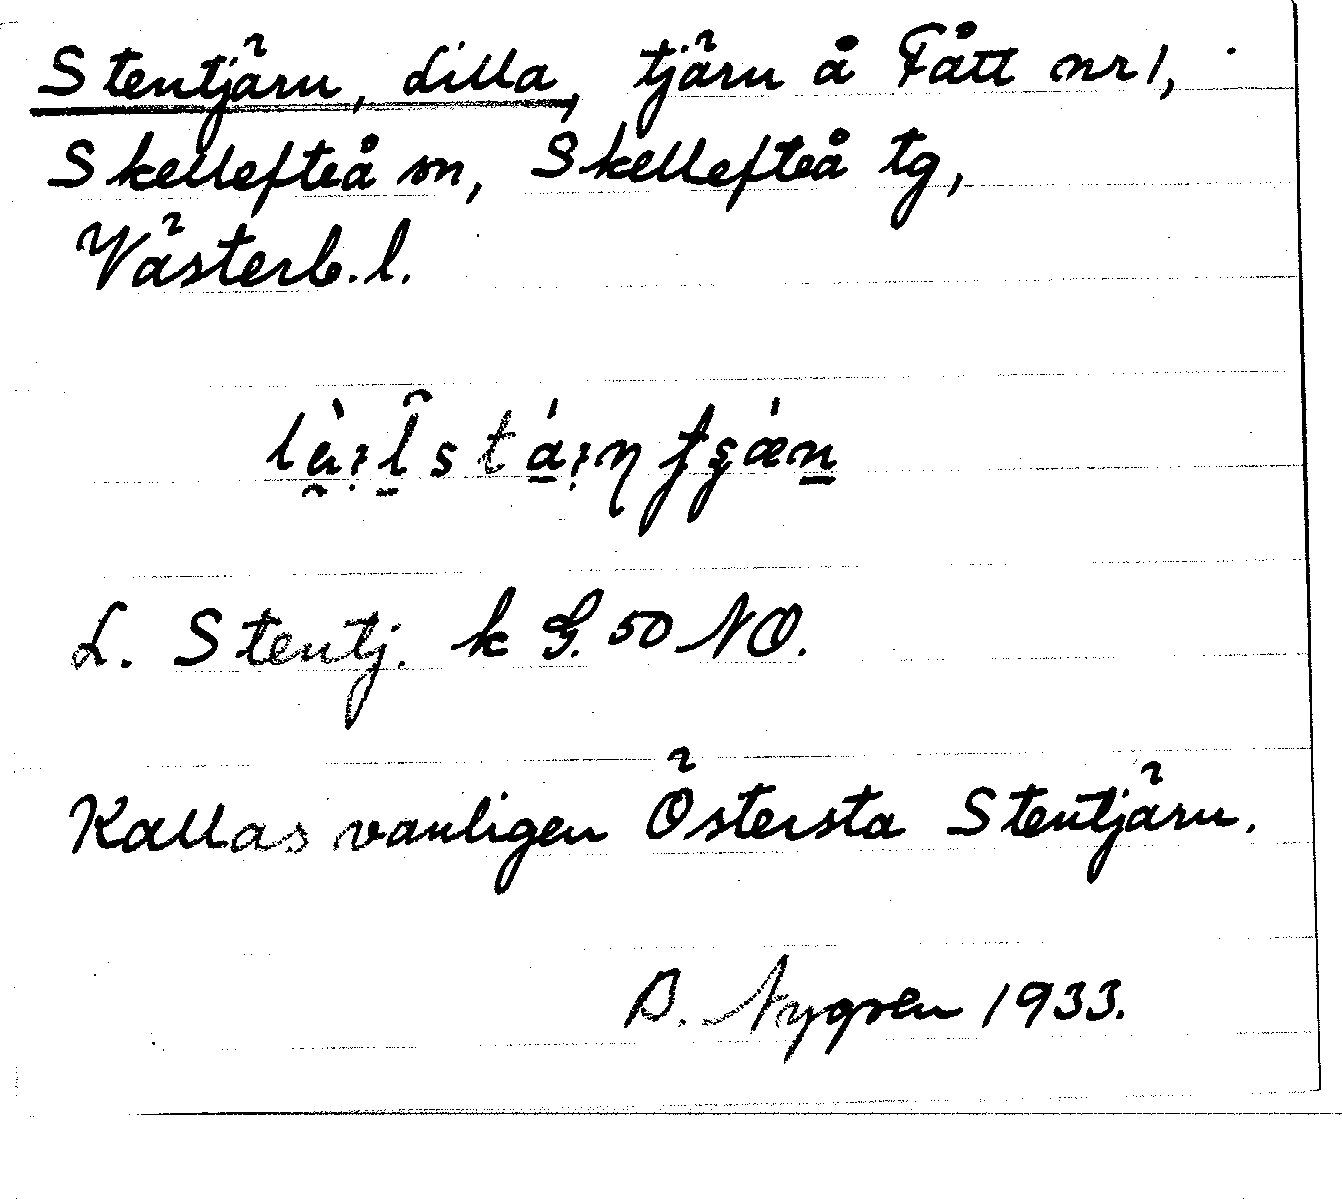 Stentjärn, Lilla, tjärn å Fått nr 1,
Skellefteå sn, Skellefteå tg,
Västerb. l.
L. Stentj. k G. 50 NO.
Kallas vanligen Östersta Stentjärn.
D. Nygren 1933.